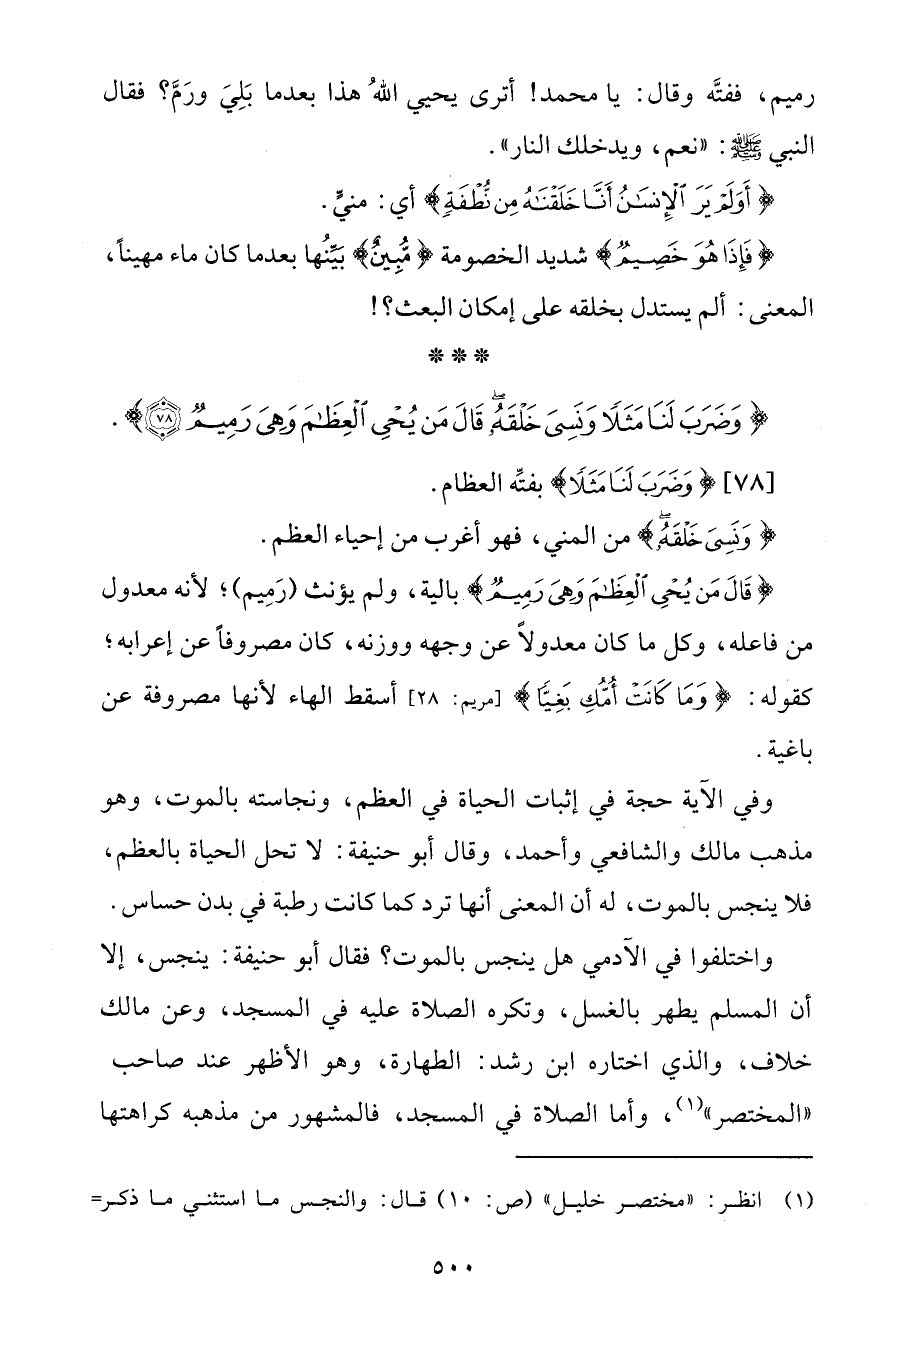 رميم، ففتَّه وقال: يا محمد! أترى يحيي اللهُ هذا بعدما بَلِيَ ورَمَّ؟ فقال
النبي ﷺ: «نعم، ويدخلك النار».
﴿أَوَلَمْ يَرَ ٱلْإِنسَـٰنُ أَنَّا خَلَقْنَـٰهُ مِن نُّطْفَةٍ﴾ أي: منيٍّ.
﴿فَإِذَا هُوَ خَصِيمٌ﴾ شديد الخصومة ﴿مُّبِينٌ﴾ بَيِّنُها بعدما كان ماء مهيناً،
المعنى: ألم يستدل بخلقه على إمكان البعث؟!
* * *
﴿وَضَرَبَ لَنَا مَثَلًا وَنَسِىَ خَلْقَهُۥۖ قَالَ مَن يُحْىِ ٱلْعِظَـٰمَ وَهِىَ رَمِيمٌ ٧٨﴾.
[٧٨] ﴿وَضَرَبَ لَنَا مَثَلًا﴾ بفتِّه العظام.
﴿وَنَسِىَ خَلْقَهُۥۖ﴾ من المني، فهو أغرب من إحياء العظم.
﴿قَالَ مَن يُحْىِ ٱلْعِظَـٰمَ وَهِىَ رَمِيمٌ﴾ بالية، ولم يؤنث (رَمِيم)؛ لأنه معدول
من فاعله، وكل ما كان معدولاً عن وجهه ووزنه، كان مصروفاً عن إعرابه؛
كقوله: ﴿وَمَا كَانَتْ أُمُّكِ بَغِيًّا﴾ [مريم: ٢٨] أسقط الهاء لأنها مصروفة عن
باغية.
وفي الآية حجة في إثبات الحياة في العظم، ونجاسته بالموت، وهو
مذهب مالك والشافعي وأحمد، وقال أبو حنيفة: لا تحل الحياة بالعظم،
فلا ينجس بالموت، له أن المعنى أنها ترد كما كانت رطبة في بدن حساس.
واختلفوا في الآدمي هل ينجس بالموت؟ فقال أبو حنيفة: ينجس، إلا
أن المسلم يطهر بالغسل، وتكره الصلاة عليه في المسجد، وعن مالك
خلاف، والذي اختاره ابن رشد: الطهارة، وهو الأظهر عند صاحب
«المختصر»(١)، وأما الصلاة في المسجد، فالمشهور من مذهبه كراهتها
(١) انظر: «مختصر خليل» (ص: ١٠) قال: والنجس ما استثني ما ذكر=
٥٠٠